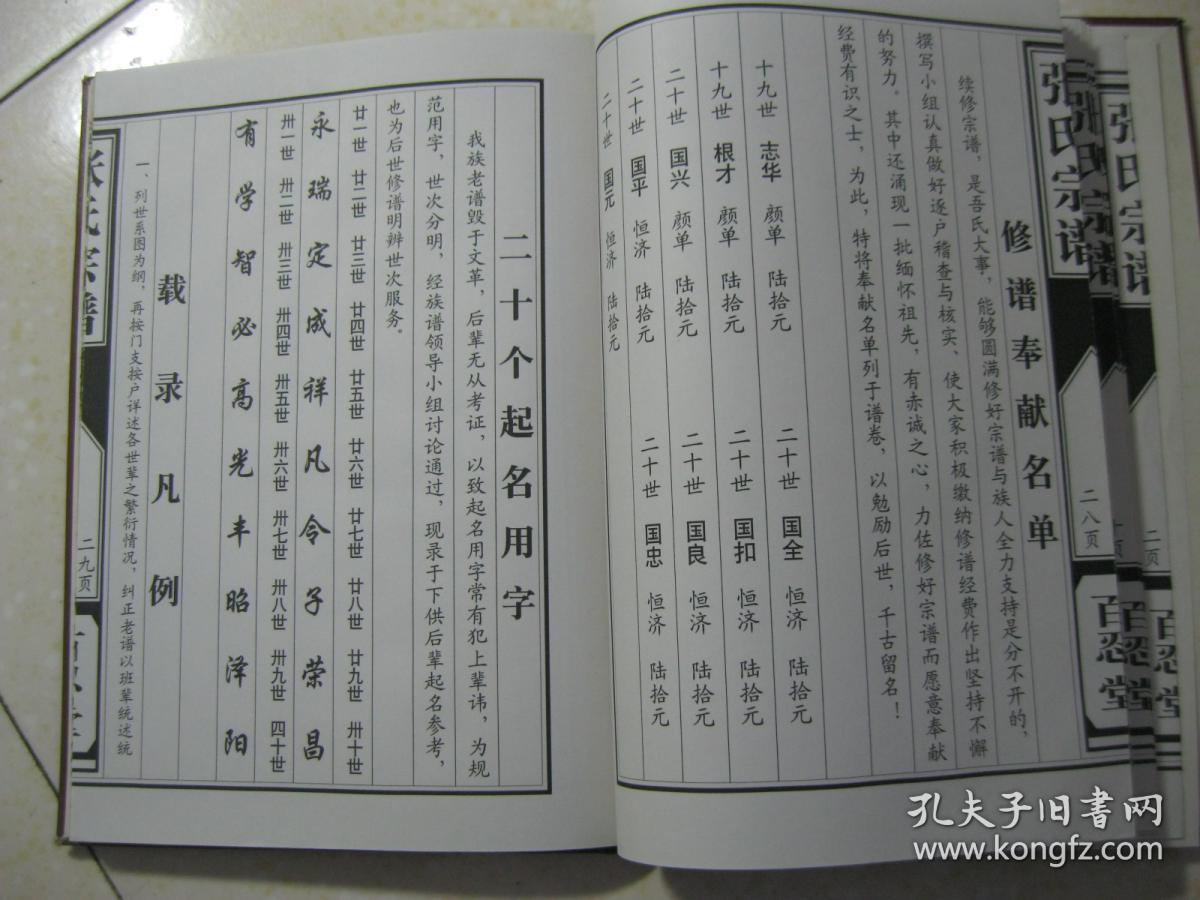 张氏宗谱
二八页
百忍堂
修谱奉献名单
续修宗谱，是吾氏大事，能够圆满修好宗谱与族人全力支持是分不开的，
撰写小组认真做好逐户稽查与核实、使大家积极缴纳修谱经费作出坚持不懈
的努力。其中还涌现一批缅怀祖先，有赤诚之心，力佐修好宗谱而愿意奉献
经费有识之士，为此，特将奉献名单列于谱卷，以勉励后世，千古留名！
十九世 志华 颜单 陆拾元 二十世 国全 恒济 陆拾元
十九世 根才 颜单 陆拾元 二十世 国扣 恒济 陆拾元
二十世 国兴 颜单 陆拾元 二十世 国良 恒济 陆拾元
二十世 国平 恒济 陆拾元 二十世 国忠 恒济 陆拾元
二十世 国元 恒济 陆拾元
二十个起名用字
我族老谱毁于文革，后辈无从考证，以致起名用字常有犯上辈讳，为规
范用字，世次分明，经族谱领导小组讨论通过，现录于下供后辈起名参考，
也为后世修谱明辨世次服务。
廿一世 廿二世 廿三世 廿四世 廿五世 廿六世 廿七世 廿八世 廿九世 卅十世
永瑞定成祥凡令子荣昌
卅一世 卅二世 卅三世 卅四世 卅五世 卅六世 卅七世 卅八世 卅九世 四十世
有学智必高光丰昭泽阳
载录凡例
一、列世系图为纲，再按门支按户详述各世辈之繁衍情况，纠正老谱以班辈统述统
张氏宗谱
二九页
张氏宗谱
二页
百忍堂
孔夫子旧书网
www.kongfz.com